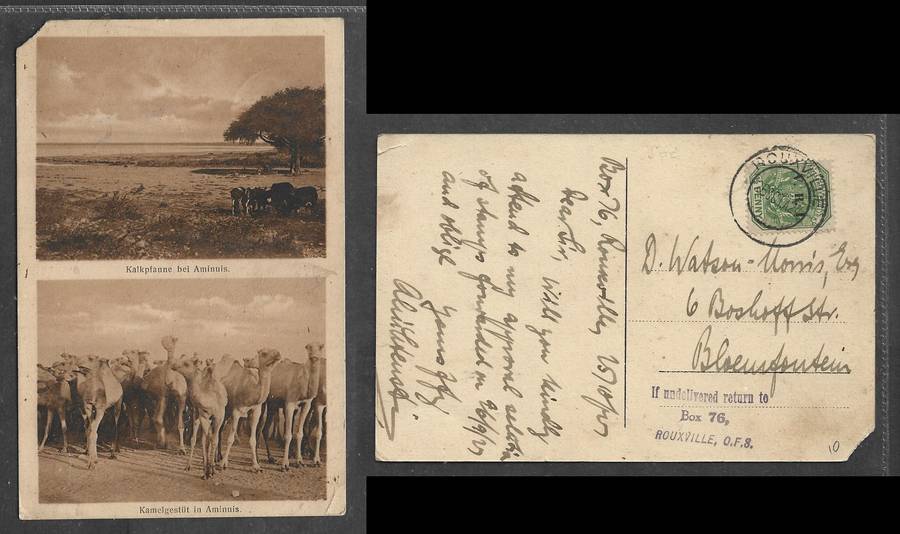 Kalkpfanne bei Aminuis.
Kamelgestüt in Aminuis.
Box 76, Rouxville,
Dear Sir, Will you kindly
attend to my approval selection
of stamps forwarded on 26/9/21
and oblige
Yours ffy
ROUXVILLE
D. Watson-Morris, Esq
6 Boshoff Str.
Bloemfontein
If undelivered return to
Box 76,
ROUXVILLE, O.F.S.
10